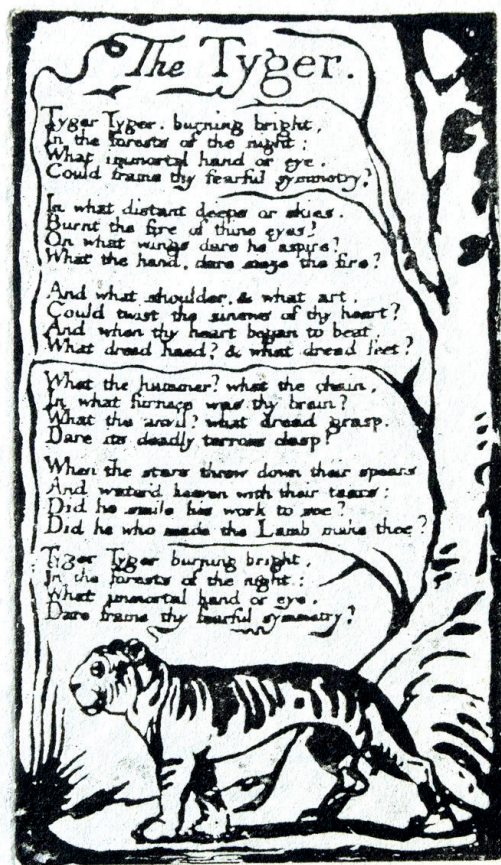 The Tyger.
Tyger Tyger. burning bright,
In the forests of the night:
What immortal hand or eye.
Could frame thy fearful symmetry?
In what distant deeps or skies.
Burnt the fire of thine eyes?
On what wings dare he aspire?
What the hand, dare sieze the fire?
And what shoulder, & what art,
Could twist the sinews of thy heart?
And when thy heart began to beat,
What dread hand? & what dread feet?
What the hammer? what the chain,
In what furnace was thy brain?
What the anvil? what dread grasp.
Dare its deadly terrors clasp!
When the stars threw down their spears
And water'd heaven with their tears:
Did he smile his work to see?
Did he who made the Lamb make thee?
Tyger Tyger burning bright,
In the forests of the night:
What immortal hand or eye,
Dare frame thy fearful symmetry?